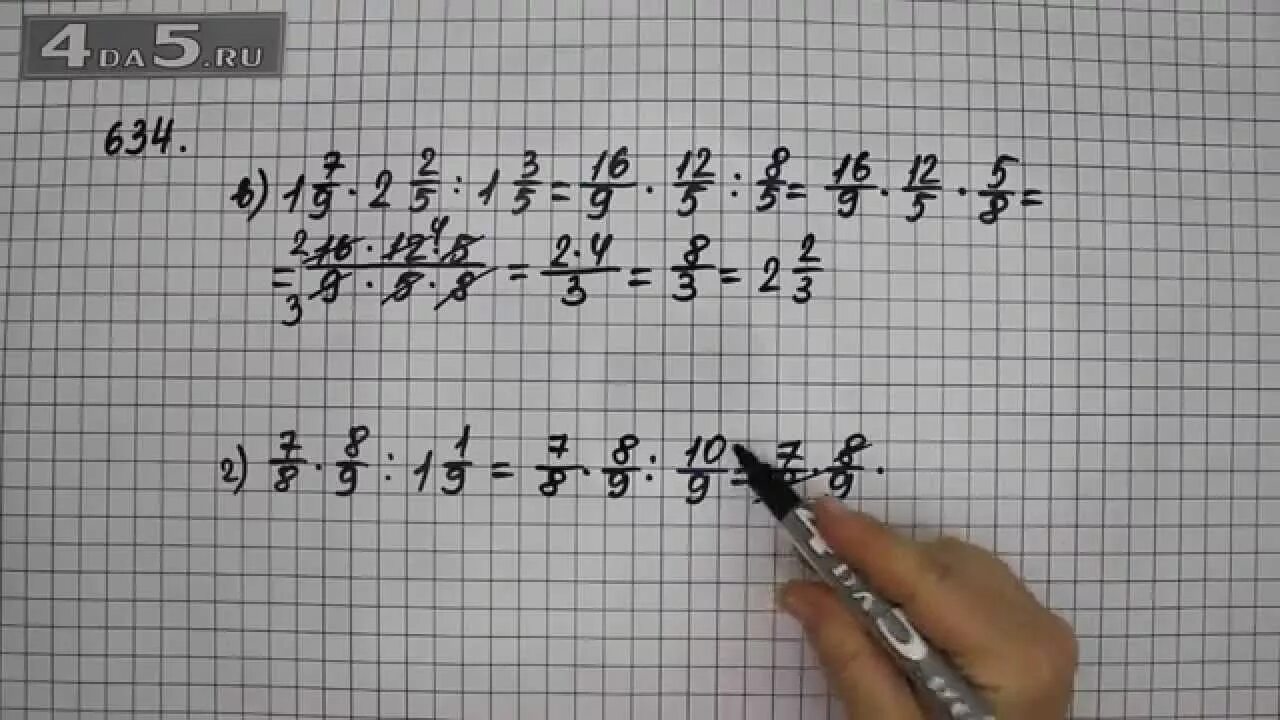 4DA5.RU
634.
в) 1 7/9 · 2 2/5 : 1 3/5 = 16/9 · 12/5 : 8/5 = 16/9 · 12/5 · 5/8 =
= 2 16 · 12 4 · 5 / 3 9 · 5 · 8 = 2·4/3 = 8/3 = 2 2/3
г) 7/8 · 8/9 : 1 1/9 = 7/8 · 8/9 : 10/9 = 7/8 · 8/9 ·
4DA